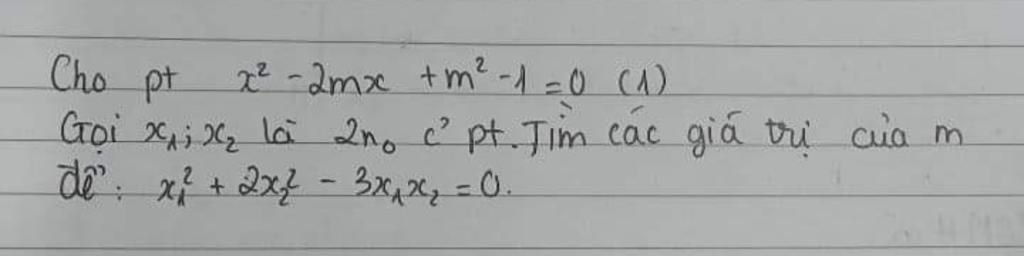 Cho pt x² - 2mx + m² - 1 = 0 (1)
Gọi x₁; x₂ là 2n₀ c² pt. Tìm các giá trị của m
để: x₁² + 2x₂² - 3x₁x₂ = 0.